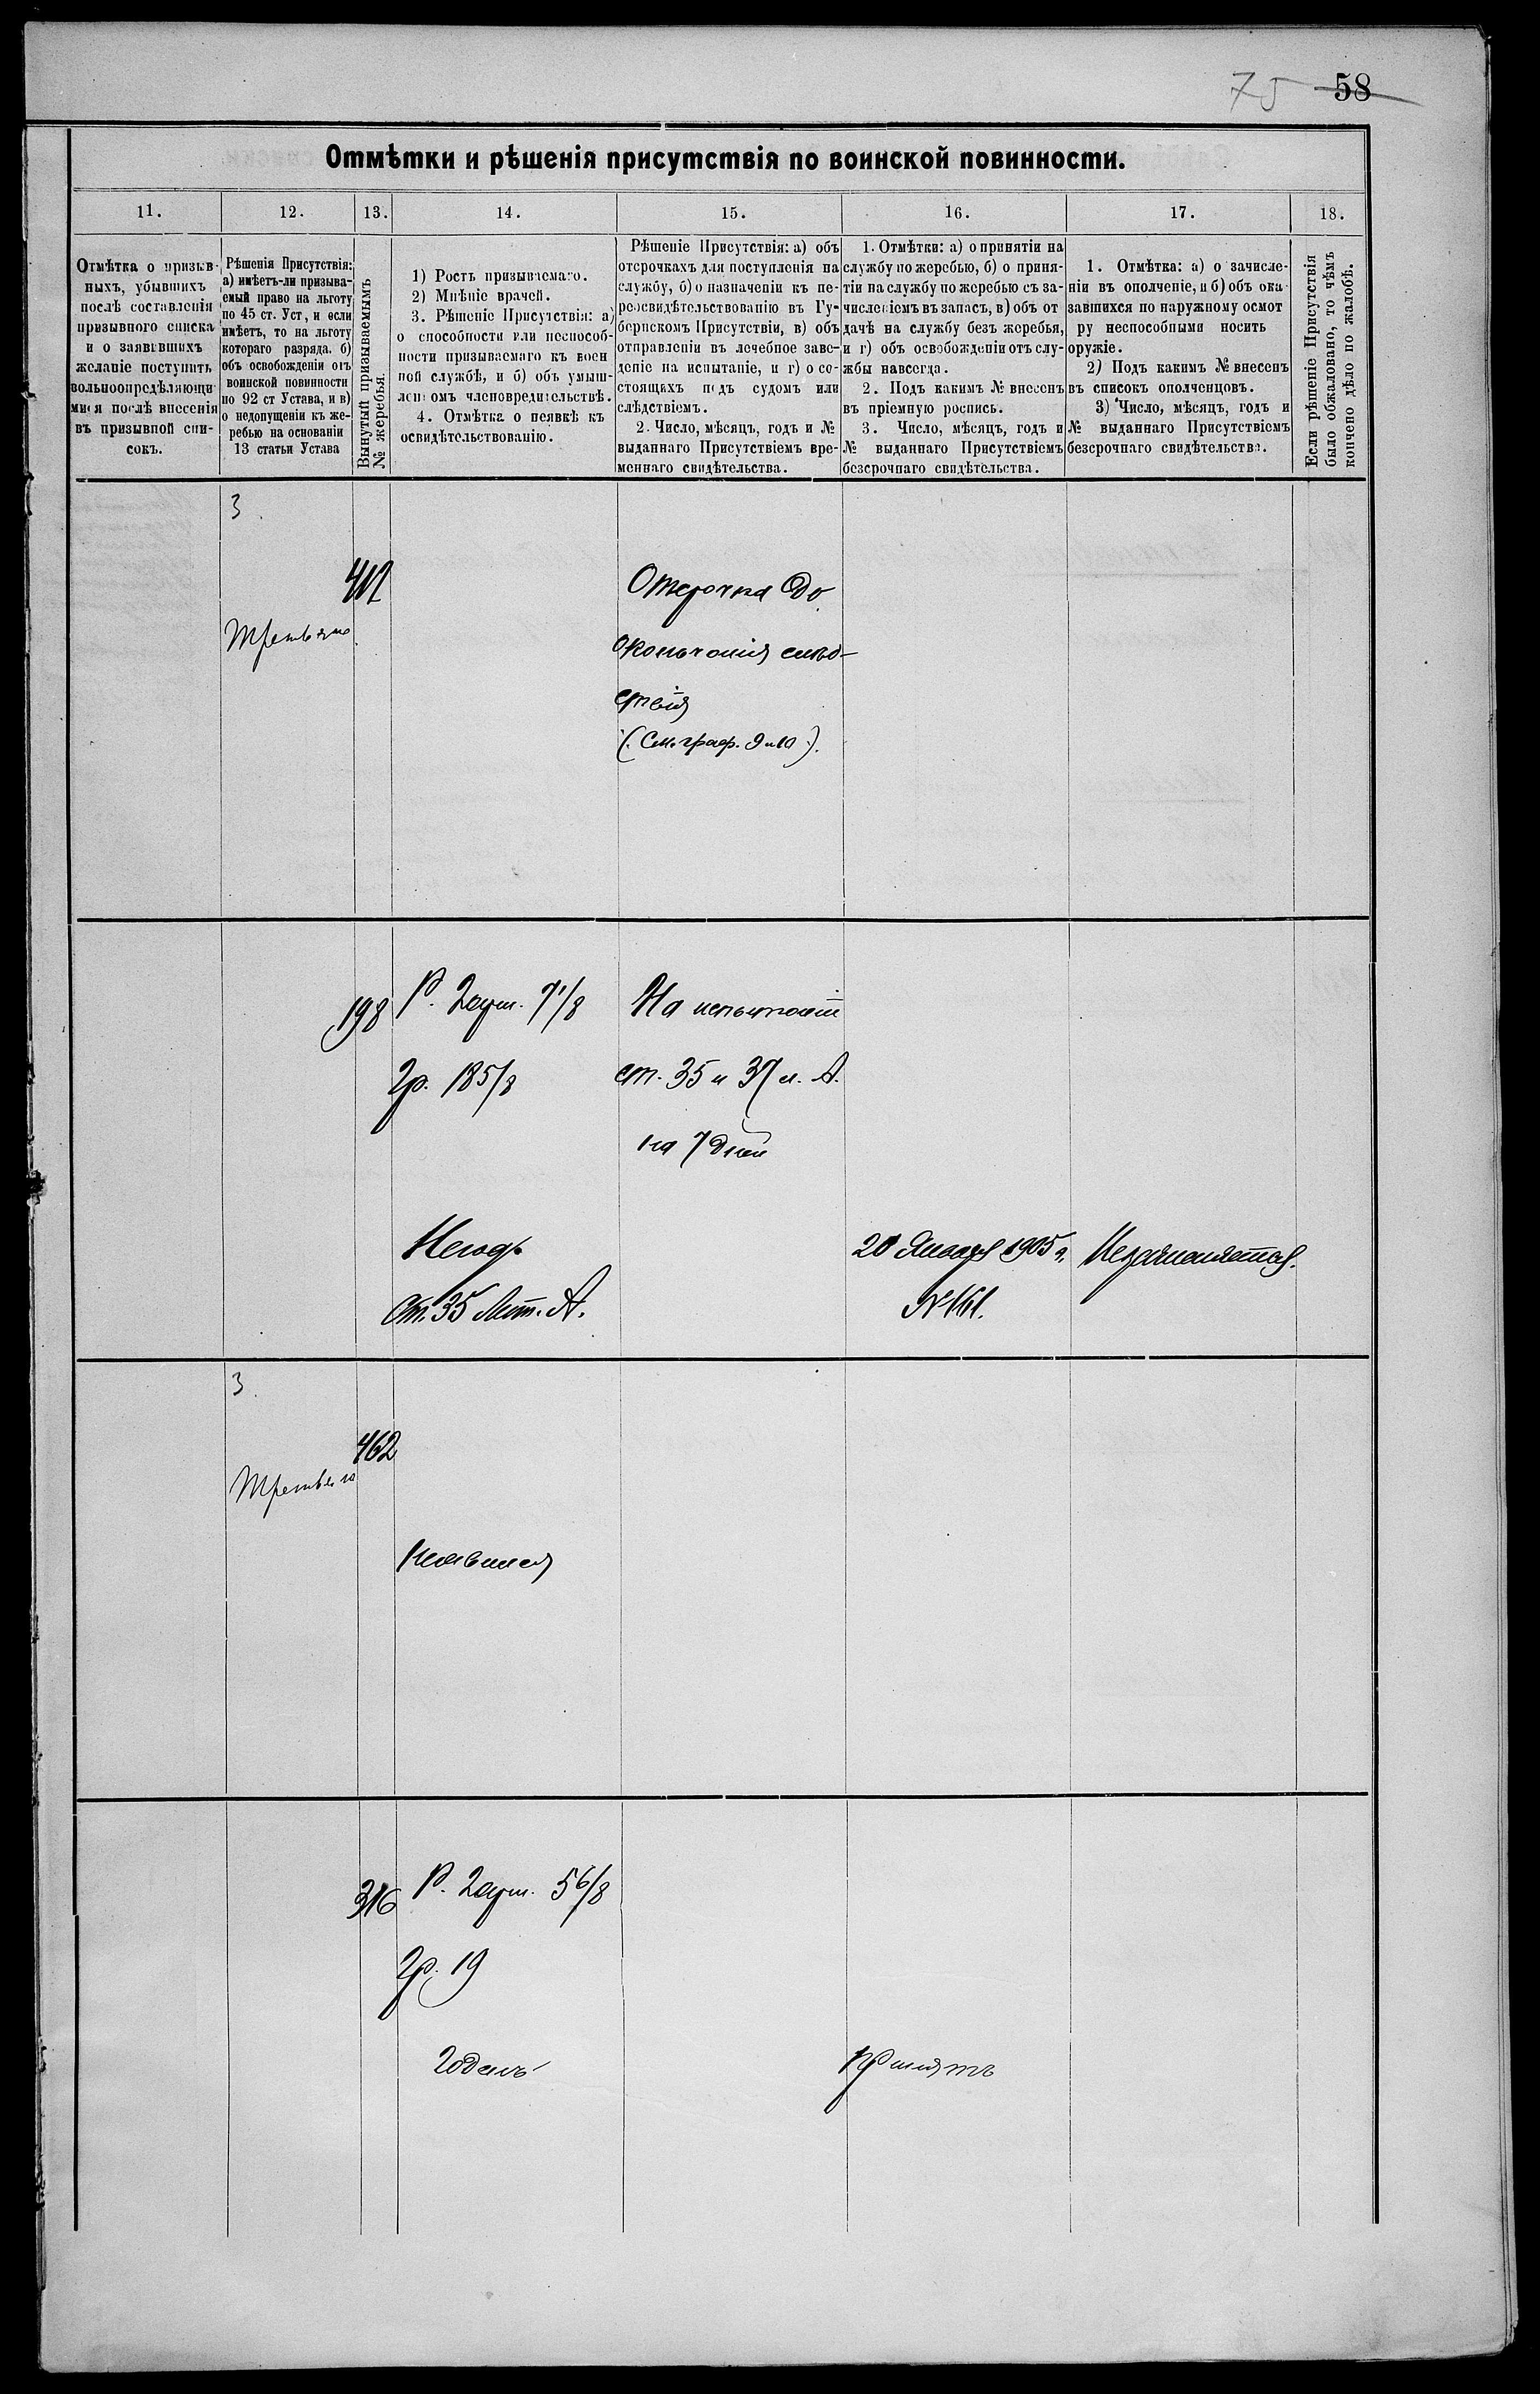 75 58
Отмѣтки и рѣшенія присутствія по воинской повинности.
11. 12. 13. 14. 15. 16. 17. 18.
Отмѣтка о призыв-
ныхъ, убывшихъ
послѣ составленія
призывного списка
и о заявившихъ
желаніе поступить
вольноопредѣляющи
мися послѣ внесенія
въ призывной спи-
сокъ.
Рѣшенія Присутствія:
а) имѣетъ-ли призыва-
емый право на льготу
по 45 ст. Уст, и если
имѣетъ, то на льготу
котораго разряда. б)
объ освобожденіи отъ
воинской повинности
по 92 ст Устава, и в)
о недопущеніи къ же-
ребью на основаніи
13 статьи Устава
Вынутый призываемымъ
№ жеребья.
1) Ростъ призываемаго.
2) Мнѣніе врачей.
3. Рѣшеніе Присутствія: а)
о способности или неспособ-
ности призываемаго къ воен
ной службѣ, и б) объ умыш-
ленномъ членовредительствѣ.
4. Отмѣтка о неявкѣ къ
освидѣтельствованію.
Рѣшеніе Присутствія: а) объ
отсрочкахъ для поступленія на
службу, б) о назначеніи къ пе-
реосвидѣтельствованію въ Гу-
бернскомъ Присутствіи, в) объ
отправленіи въ лечебное заве-
деніе на испытаніе, и г) о со-
стоящахъ подъ судомъ или
слѣдствіемъ.
2. Число, мѣсяцъ, годъ и №
выданнаго Присутствіемъ вре-
меннаго свидѣтельства.
1. Отмѣтки: а) о принятіи на
службу по жеребью, б) о приня-
тіи на службу по жеребью съ за-
численіемъ въ запасъ, в) объ от
дачѣ на службу безъ жеребья,
и г) объ освобожденіи отъ слу-
жбы навсегда.
2. Подъ какимъ № внесенъ
въ пріемную роспись.
3. Число, мѣсяцъ, годъ и
№ выданнаго Присутствіемъ
безсрочнаго свидѣтельства.
1. Отмѣтка: а) о зачисле-
ніи въ ополченіе, и б) объ ока
завшихся по наружному осмот
ру неспособными носить
оружіе.
2) Подъ какимъ № внесенъ
въ списокъ ополченцовъ.
3) Число, мѣсяцъ, годъ и
№ выданнаго Присутствіемъ
безсрочнаго свидѣтельства.
Если рѣшеніе Присутствія
было обжаловано, то чѣмъ
кончено дѣло по жалобѣ.
3.
Третьяго
Отсрочка до
окончанія слѣд-
ствія
(См. граф. 9 и 10).
198
Р. 2 арш. 7 1/8
Гр. 18 5/8
На испытаніе
ст. 35 и 37 л. А.
на 7 дней
Негод.
Ст. 35 Лит. А.
20 Января 1905 г.
№ 161.
Незачисляется.
3.
462
Третьяго
Неявился
316
Р. 2 арш. 5 6/8
Гр. 19
Годенъ
Принятъ